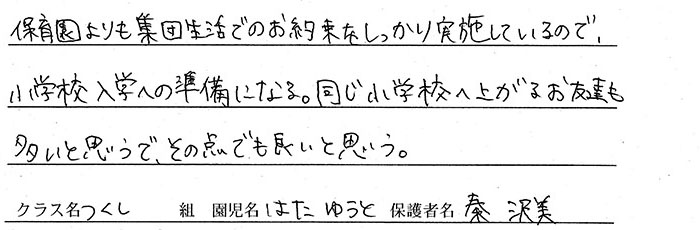 保育園よりも集団生活でのお約束をしっかり実施しているので、
小学校入学への準備になる。同じ小学校へ上がるお友達も
多いと思うで、その点でも良いと思う。
クラス名 つくし 組 園児名 はた ゆうと 保護者名 秦 沢美